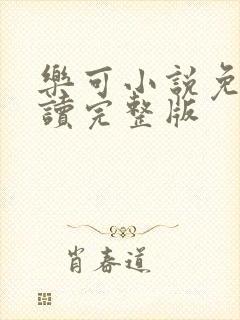 樂可小說免
讀完整版
肖春道